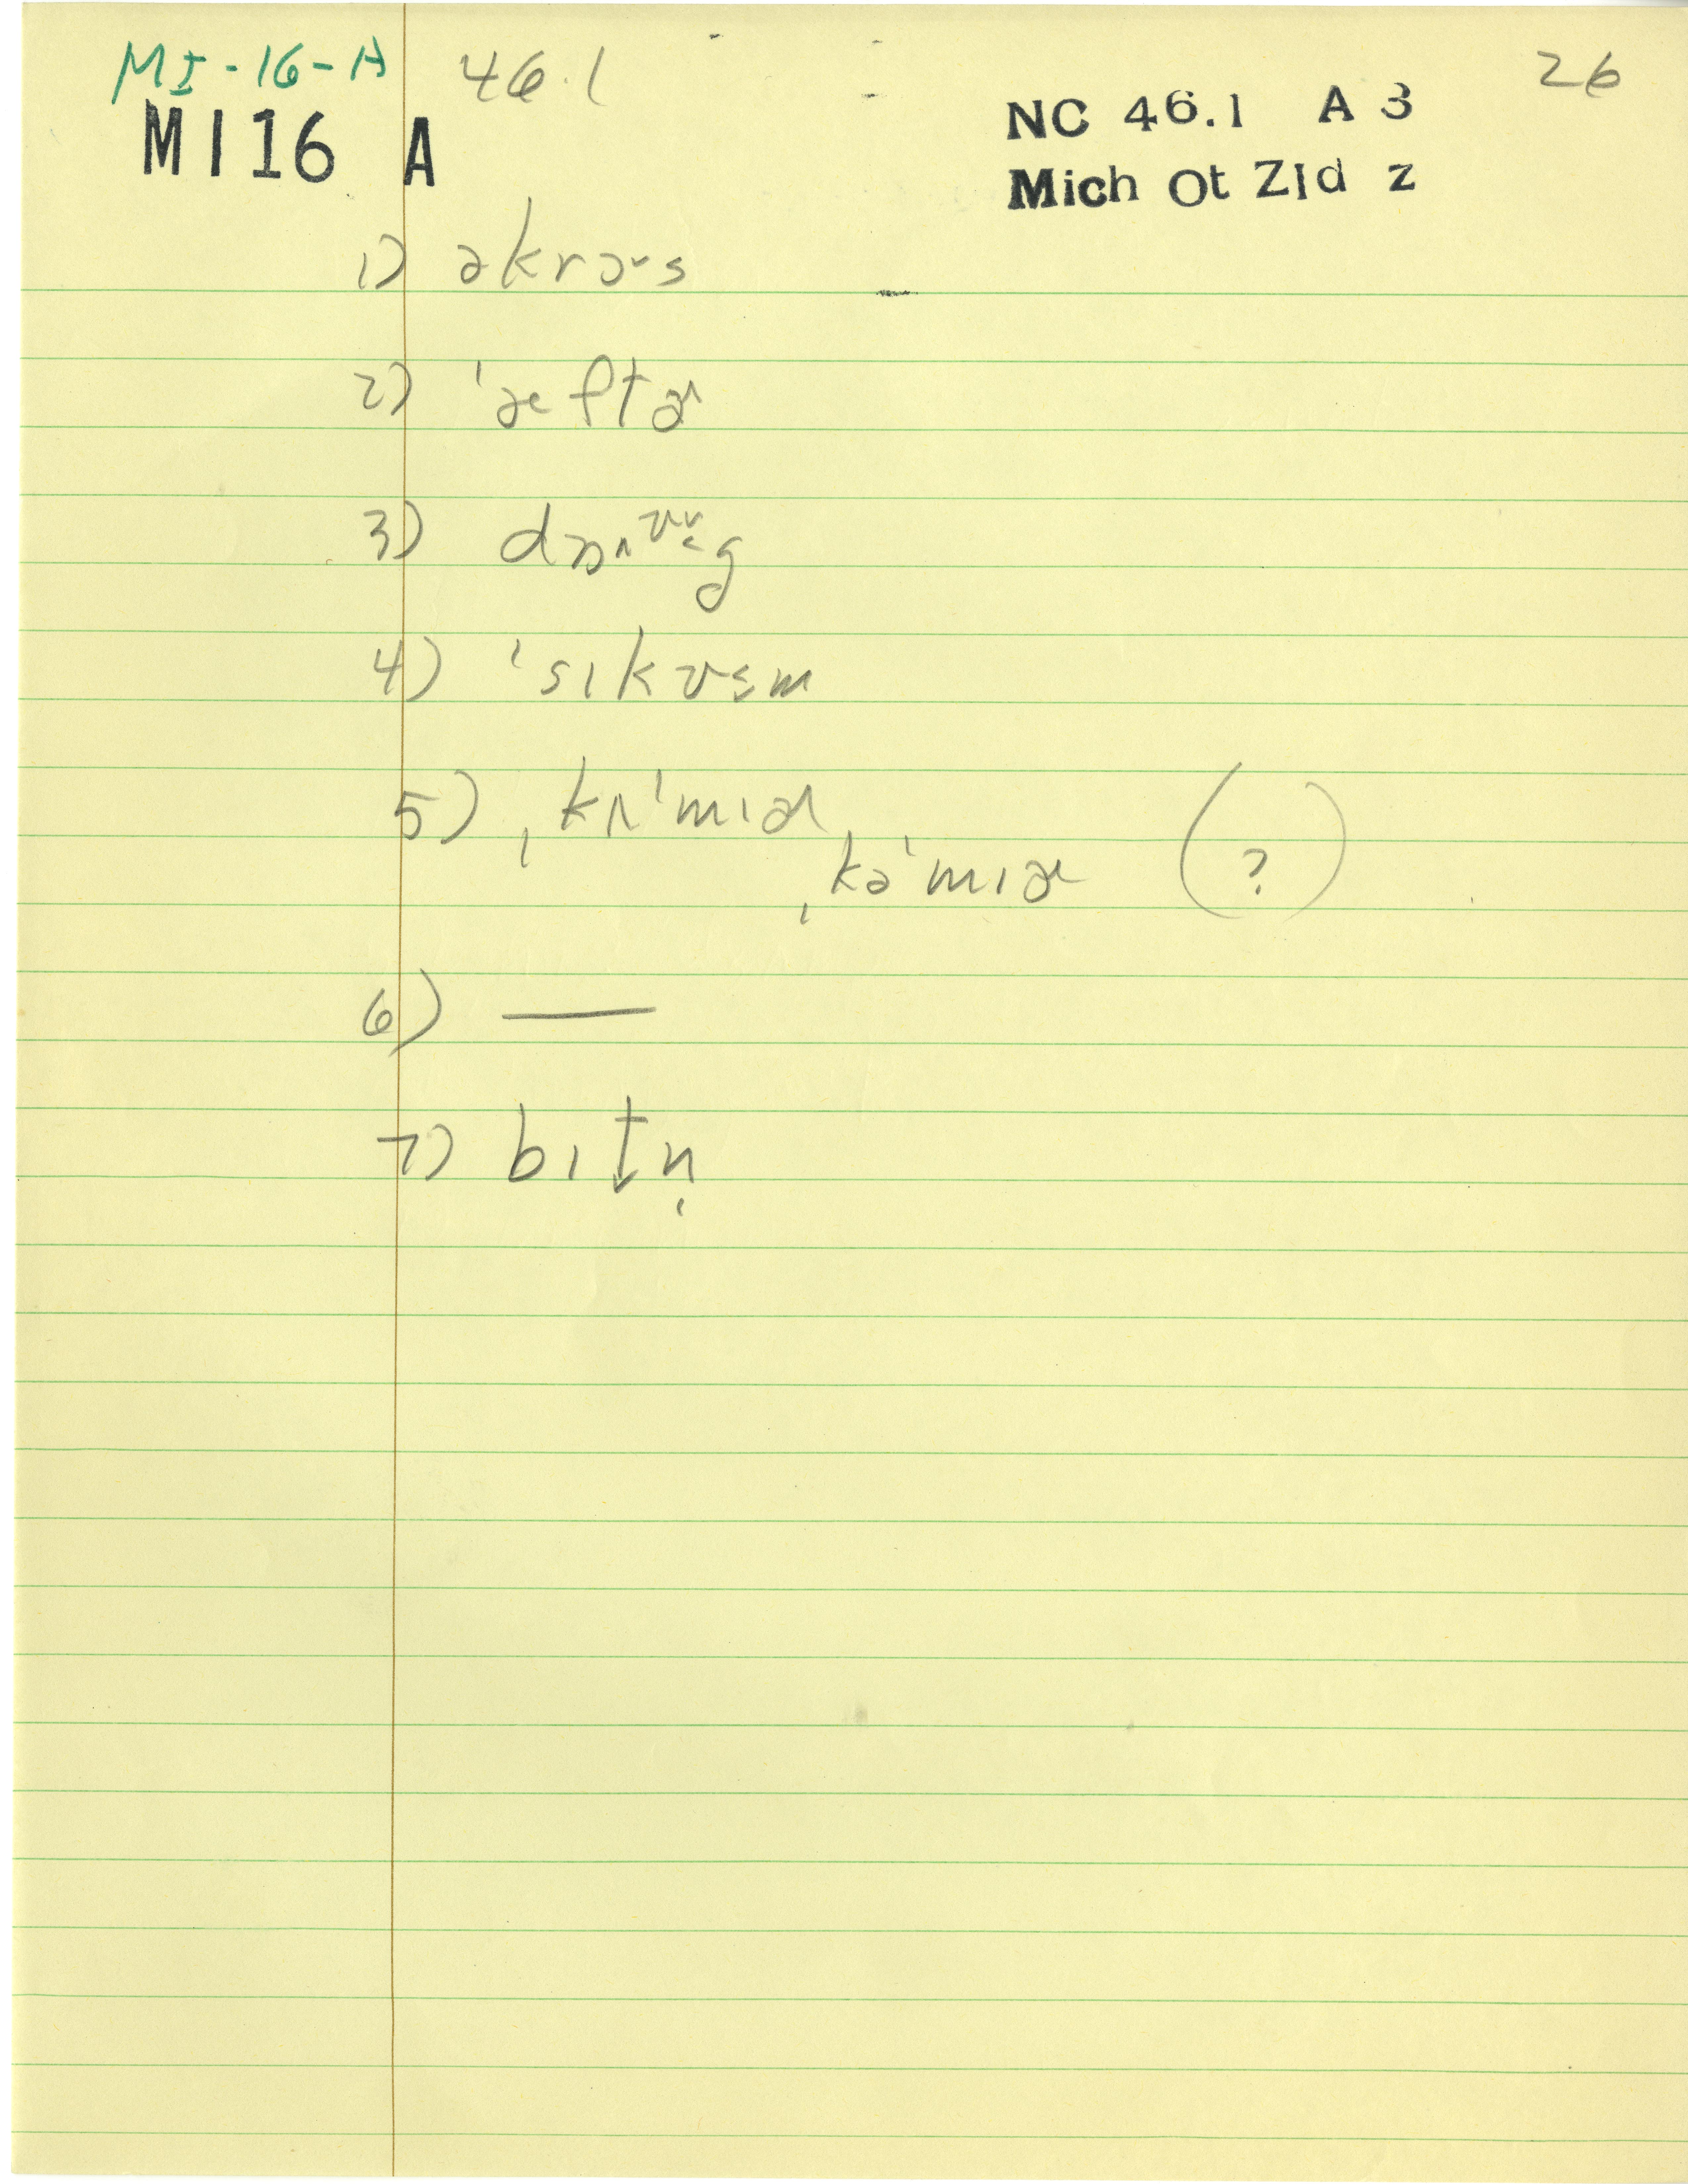 MI-16-A 46.1
26
MI16 A
NC 46.1 A 3
Mich Ot Zld z
1) əkrɔ˞s
2) ˈæftɚ
3)
4)
5) ˌkʌˈmɪɚ
ˌkəˈmɪɚ (?)
6) —
7) bɪtn̩